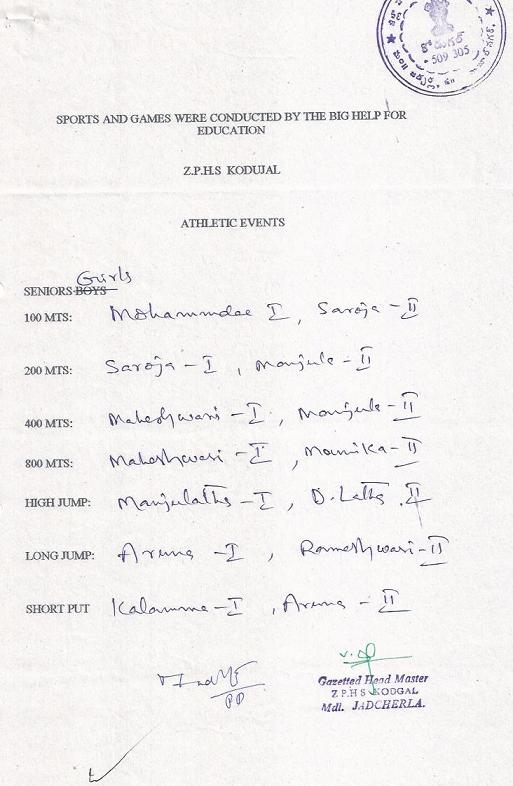 కోడుగల్
509 305
SPORTS AND GAMES WERE CONDUCTED BY THE BIG HELP FOR
EDUCATION
Z.P.H.S KODUJAL
ATHLETIC EVENTS
Girls
SENIORS BOYS
100 MTS: Mohammdae I, Saroja - II
200 MTS: Saroja - I, Manjula - II
400 MTS: Maheshwari - I, Manjula - II
800 MTS: Maheshwari - I, Mounika - II
HIGH JUMP: Manjulatha - I, D. Latha. II
LONG JUMP: Aruna - I, Rameshwari - II
SHORT PUT Kalamma - I, Aruna - II
PD
Gazetted Head Master
Z P H S KODGAL
Mdl. JADCHERLA.